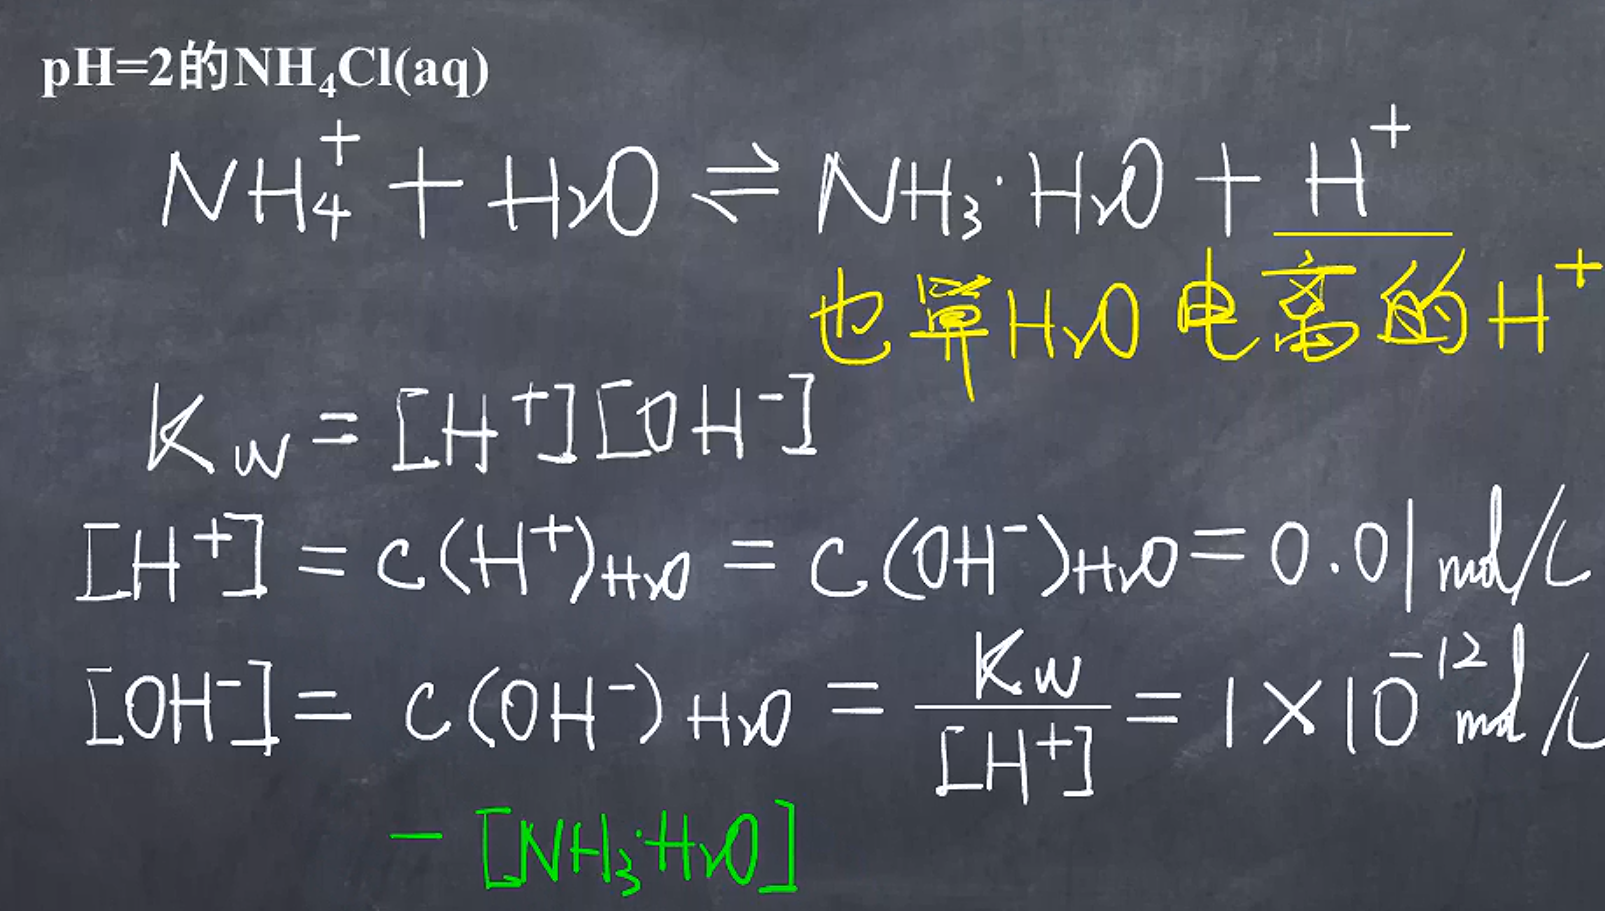 pH=2的NH₄Cl(aq)
NH₄⁺ + H₂O ⇌ NH₃·H₂O + H⁺
也算H₂O电离的H⁺
Kw = [H⁺][OH⁻]
[H⁺] = C(H⁺)H₂O = C(OH⁻)H₂O = 0.01mol/L
[OH⁻] = C(OH⁻)H₂O = Kw/[H⁺] = 1×10⁻¹²mol/L
- [NH₃·H₂O]